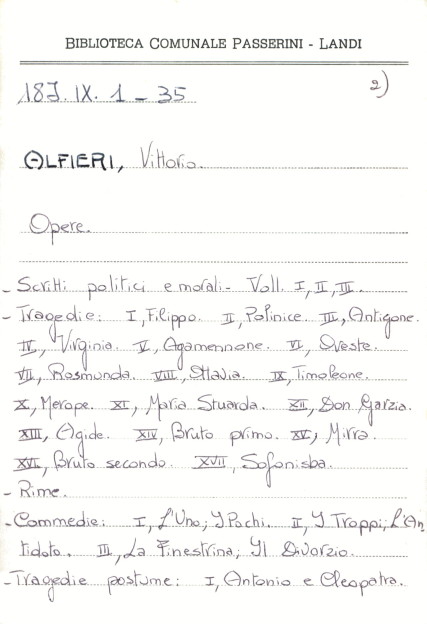 BIBLIOTECA COMUNALE PASSERINI - LANDI
2)
18J. IX. 1 - 35
ALFIERI, Vittorio.
Opere.
- Scritti politici e morali - Voll. I, II, III.
- Tragedie: I, Filippo. II, Polinice. III, Antigone.
IV, Virginia. V, Agamennone. VI, Oreste.
VII, Rosmunda. VIII, Ottavia. IX, Timoleone.
X, Merope. XI, Maria Stuarda. XII, Don Garzia.
XIII, Agide. XIV, Bruto primo. XV, Mirra.
XVI, Bruto secondo. XVII, Sofonisba.
- Rime.
- Commedie: I, L'Uno; I Pochi. II, I Troppi; L'An
tidoto. III, La Finestrina; Il Divorzio.
- Tragedie postume: I, Antonio e Cleopatra.